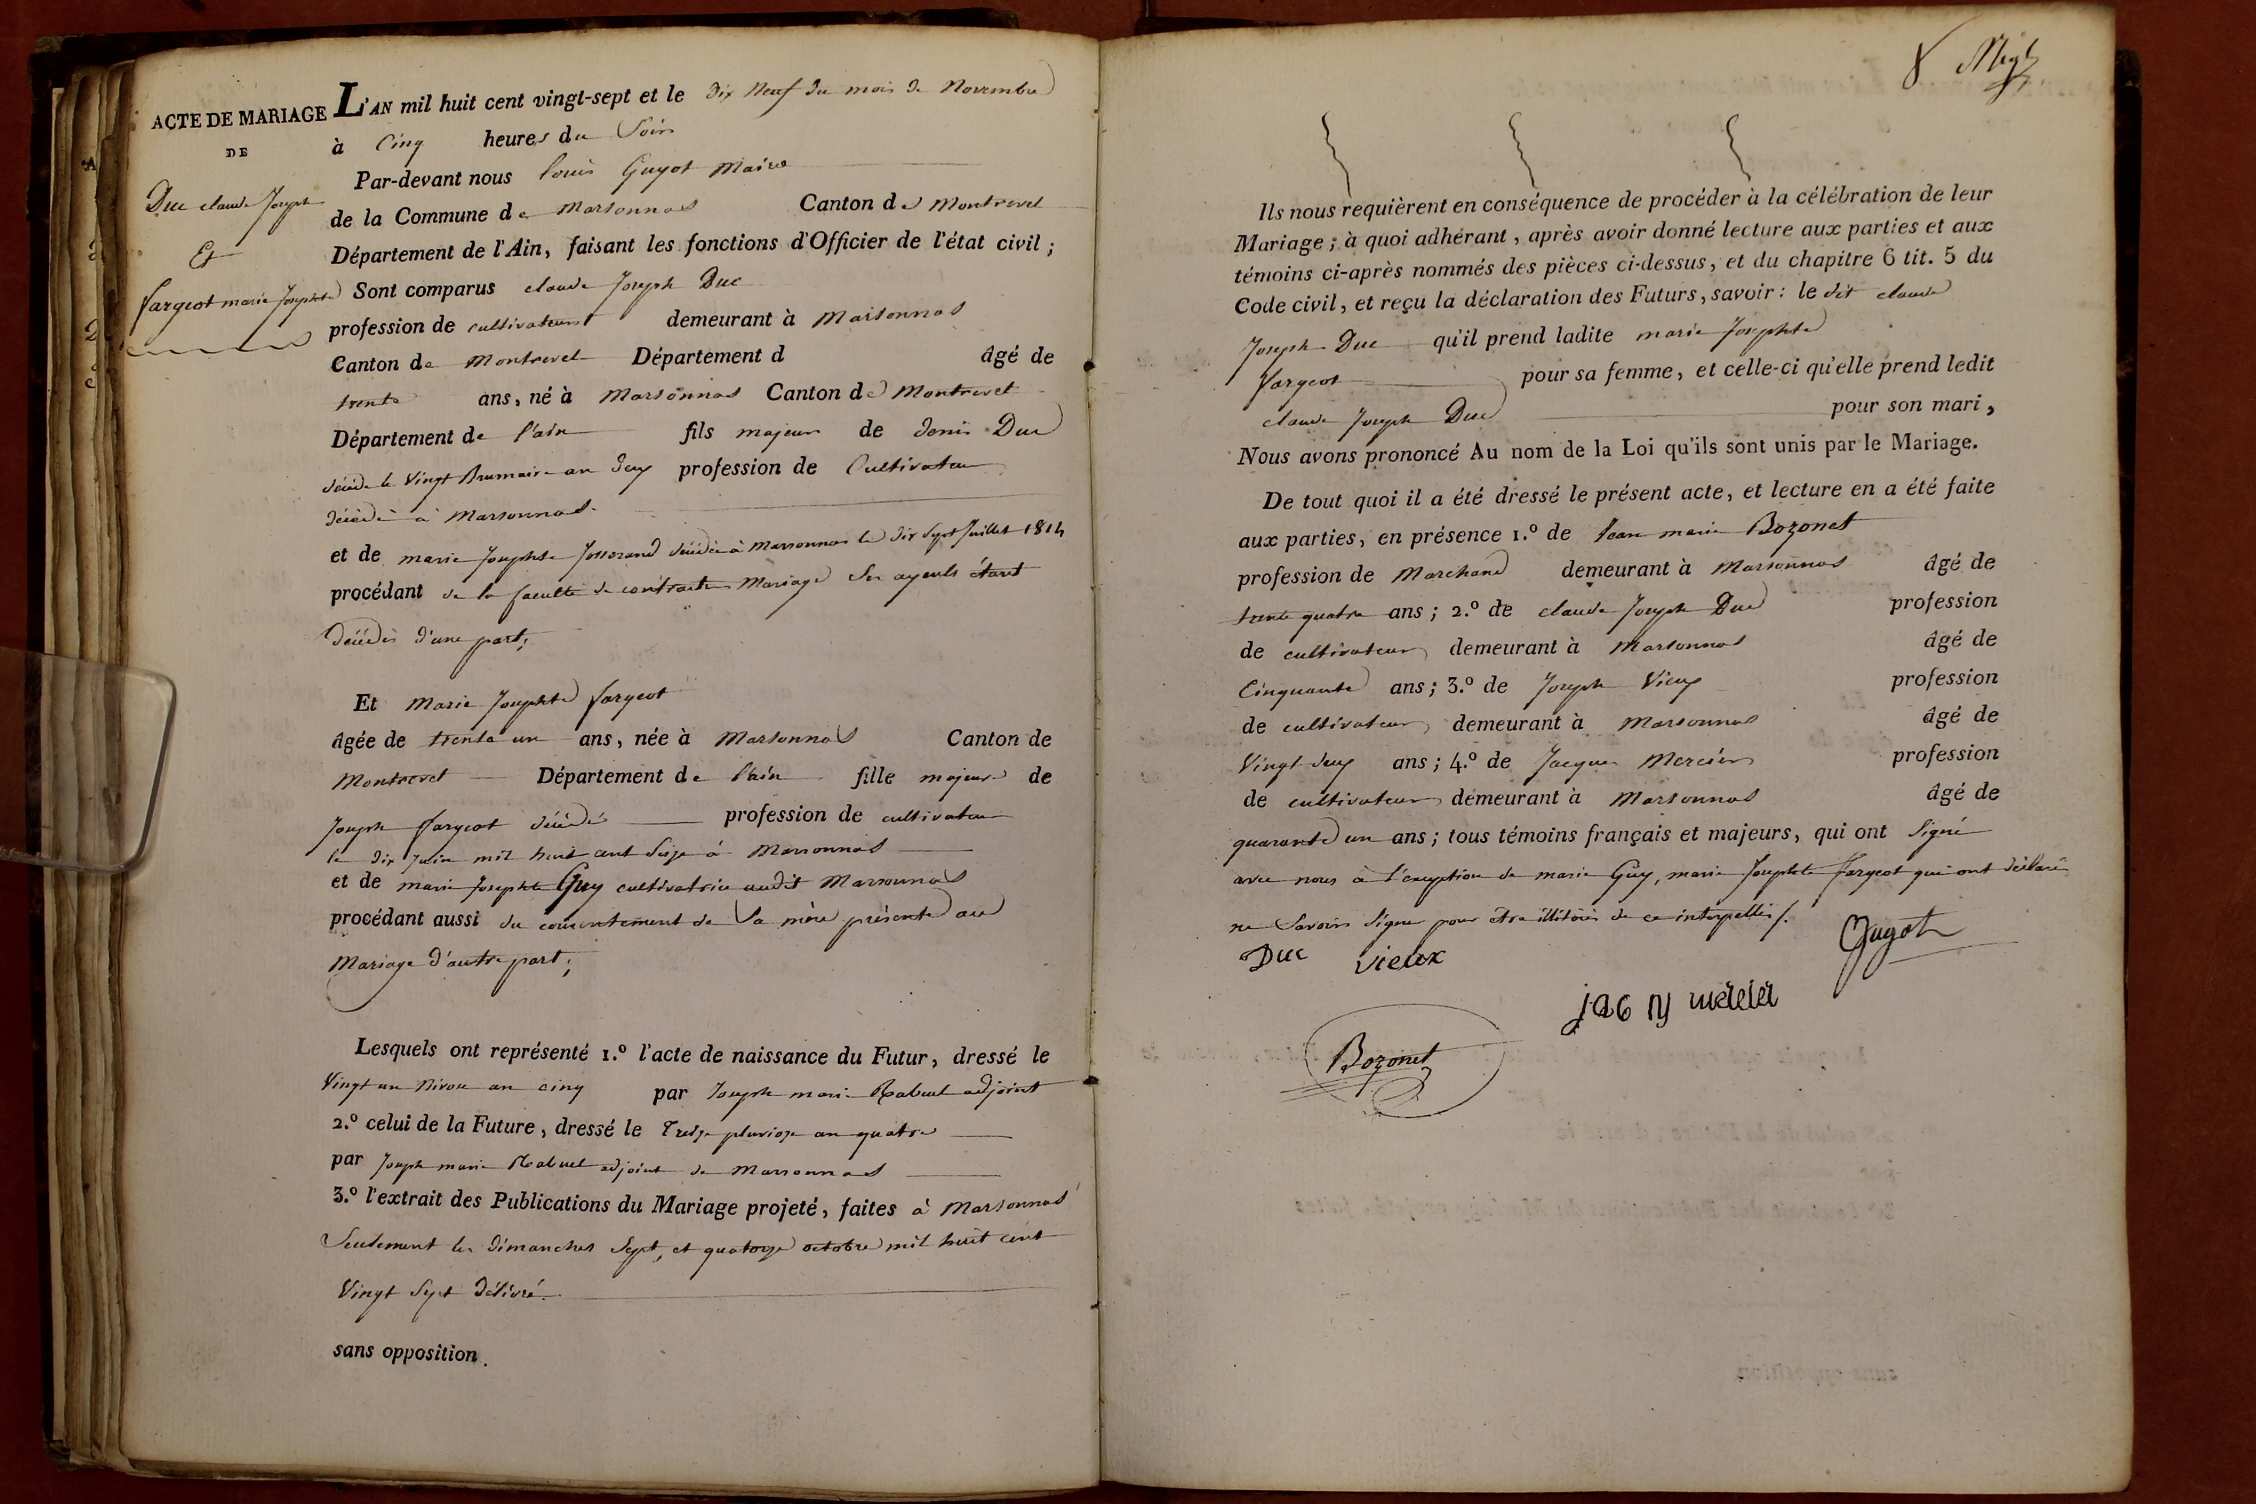 ACTE DE MARIAGE
DE
Duc claude Joseph
Et
fargeot marie Josephte
L'AN mil huit cent vingt-sept et le dix Neuf du mois de Novembre
à Cinq heures du Soir
Par-devant nous Louis Guyot Maire
de la Commune de Marsonnas Canton de Montrevel
Département de l'Ain, faisant les fonctions d'Officier de l'état civil ;
Sont comparus claude Joseph Duc
profession de cultivateur demeurant à Marsonnas
Canton de Montrevel Département d âgé de
trente ans, né à Marsonnas Canton de Montrevel
Département de l'ain fils majeur de denis Duc
décédé le Vingt Brumaire an deux profession de Cultivateur
décédé à Marsonnas.
et de marie Josephte Josserand décédée à Marsonnas le dix Sept Juillet 1814
procédant de la faculté de contracter Mariage Ses ayeuls étant
décédés d'une part ;
Et Marie Josephte fargeot
âgée de trente un ans, née à Marsonnas Canton de
Montrevel Département de l'ain fille majeure de
Joseph fargeot décédé profession de cultivateur
le dix Juin mil huit cent Seize à Marsonnas
et de marie Josephte Guy cultivatrice audit Marsonnas
procédant aussi du consentement de Sa mère présente au
Mariage d'autre part ;
Lesquels ont représenté 1.º l'acte de naissance du Futur, dressé le
Vingt un Nivose an cinq par Joseph marie Rabuel adjoint
2.º celui de la Future, dressé le Treize pluviose an quatre
par Joseph marie Rabuel adjoint de Marsonnas
3.º l'extrait des Publications du Mariage projeté, faites à Marsonnas
Seulement les dimanches Sept, et quatorze octobre mil huit cent
Vingt Sept délivré.
sans opposition.
8
Ils nous requièrent en conséquence de procéder à la célébration de leur
Mariage ; à quoi adhérant, après avoir donné lecture aux parties et aux
témoins ci-après nommés des pièces ci-dessus, et du chapitre 6 tit. 5 du
Code civil, et reçu la déclaration des Futurs, savoir : le dit claude
Joseph Duc qu'il prend ladite marie Josephte
fargeot pour sa femme, et celle-ci qu'elle prend ledit
claude Joseph Duc pour son mari,
Nous avons prononcé Au nom de la Loi qu'ils sont unis par le Mariage.
De tout quoi il a été dressé le présent acte, et lecture en a été faite
aux parties, en présence 1.º de Jean marie Bozonet
profession de Marchand demeurant à Marsonnas âgé de
trente quatre ans ; 2.º de claude Joseph Duc profession
de cultivateur demeurant à Marsonnas âgé de
Cinquante ans ; 3.º de Joseph Vieux profession
de cultivateur demeurant à Marsonnas âgé de
Vingt deux ans ; 4.º de Jacques Mercier profession
de cultivateur demeurant à Marsonnas âgé de
quarante un ans ; tous témoins français et majeurs, qui ont Signé
avec nous à l'exception de marie Guy, marie Josephte Fargeot qui ont déclaré
ne Savoir Signer pour être illitérés de ce interpellés /.
Duc vieux Guyot
Bozonet